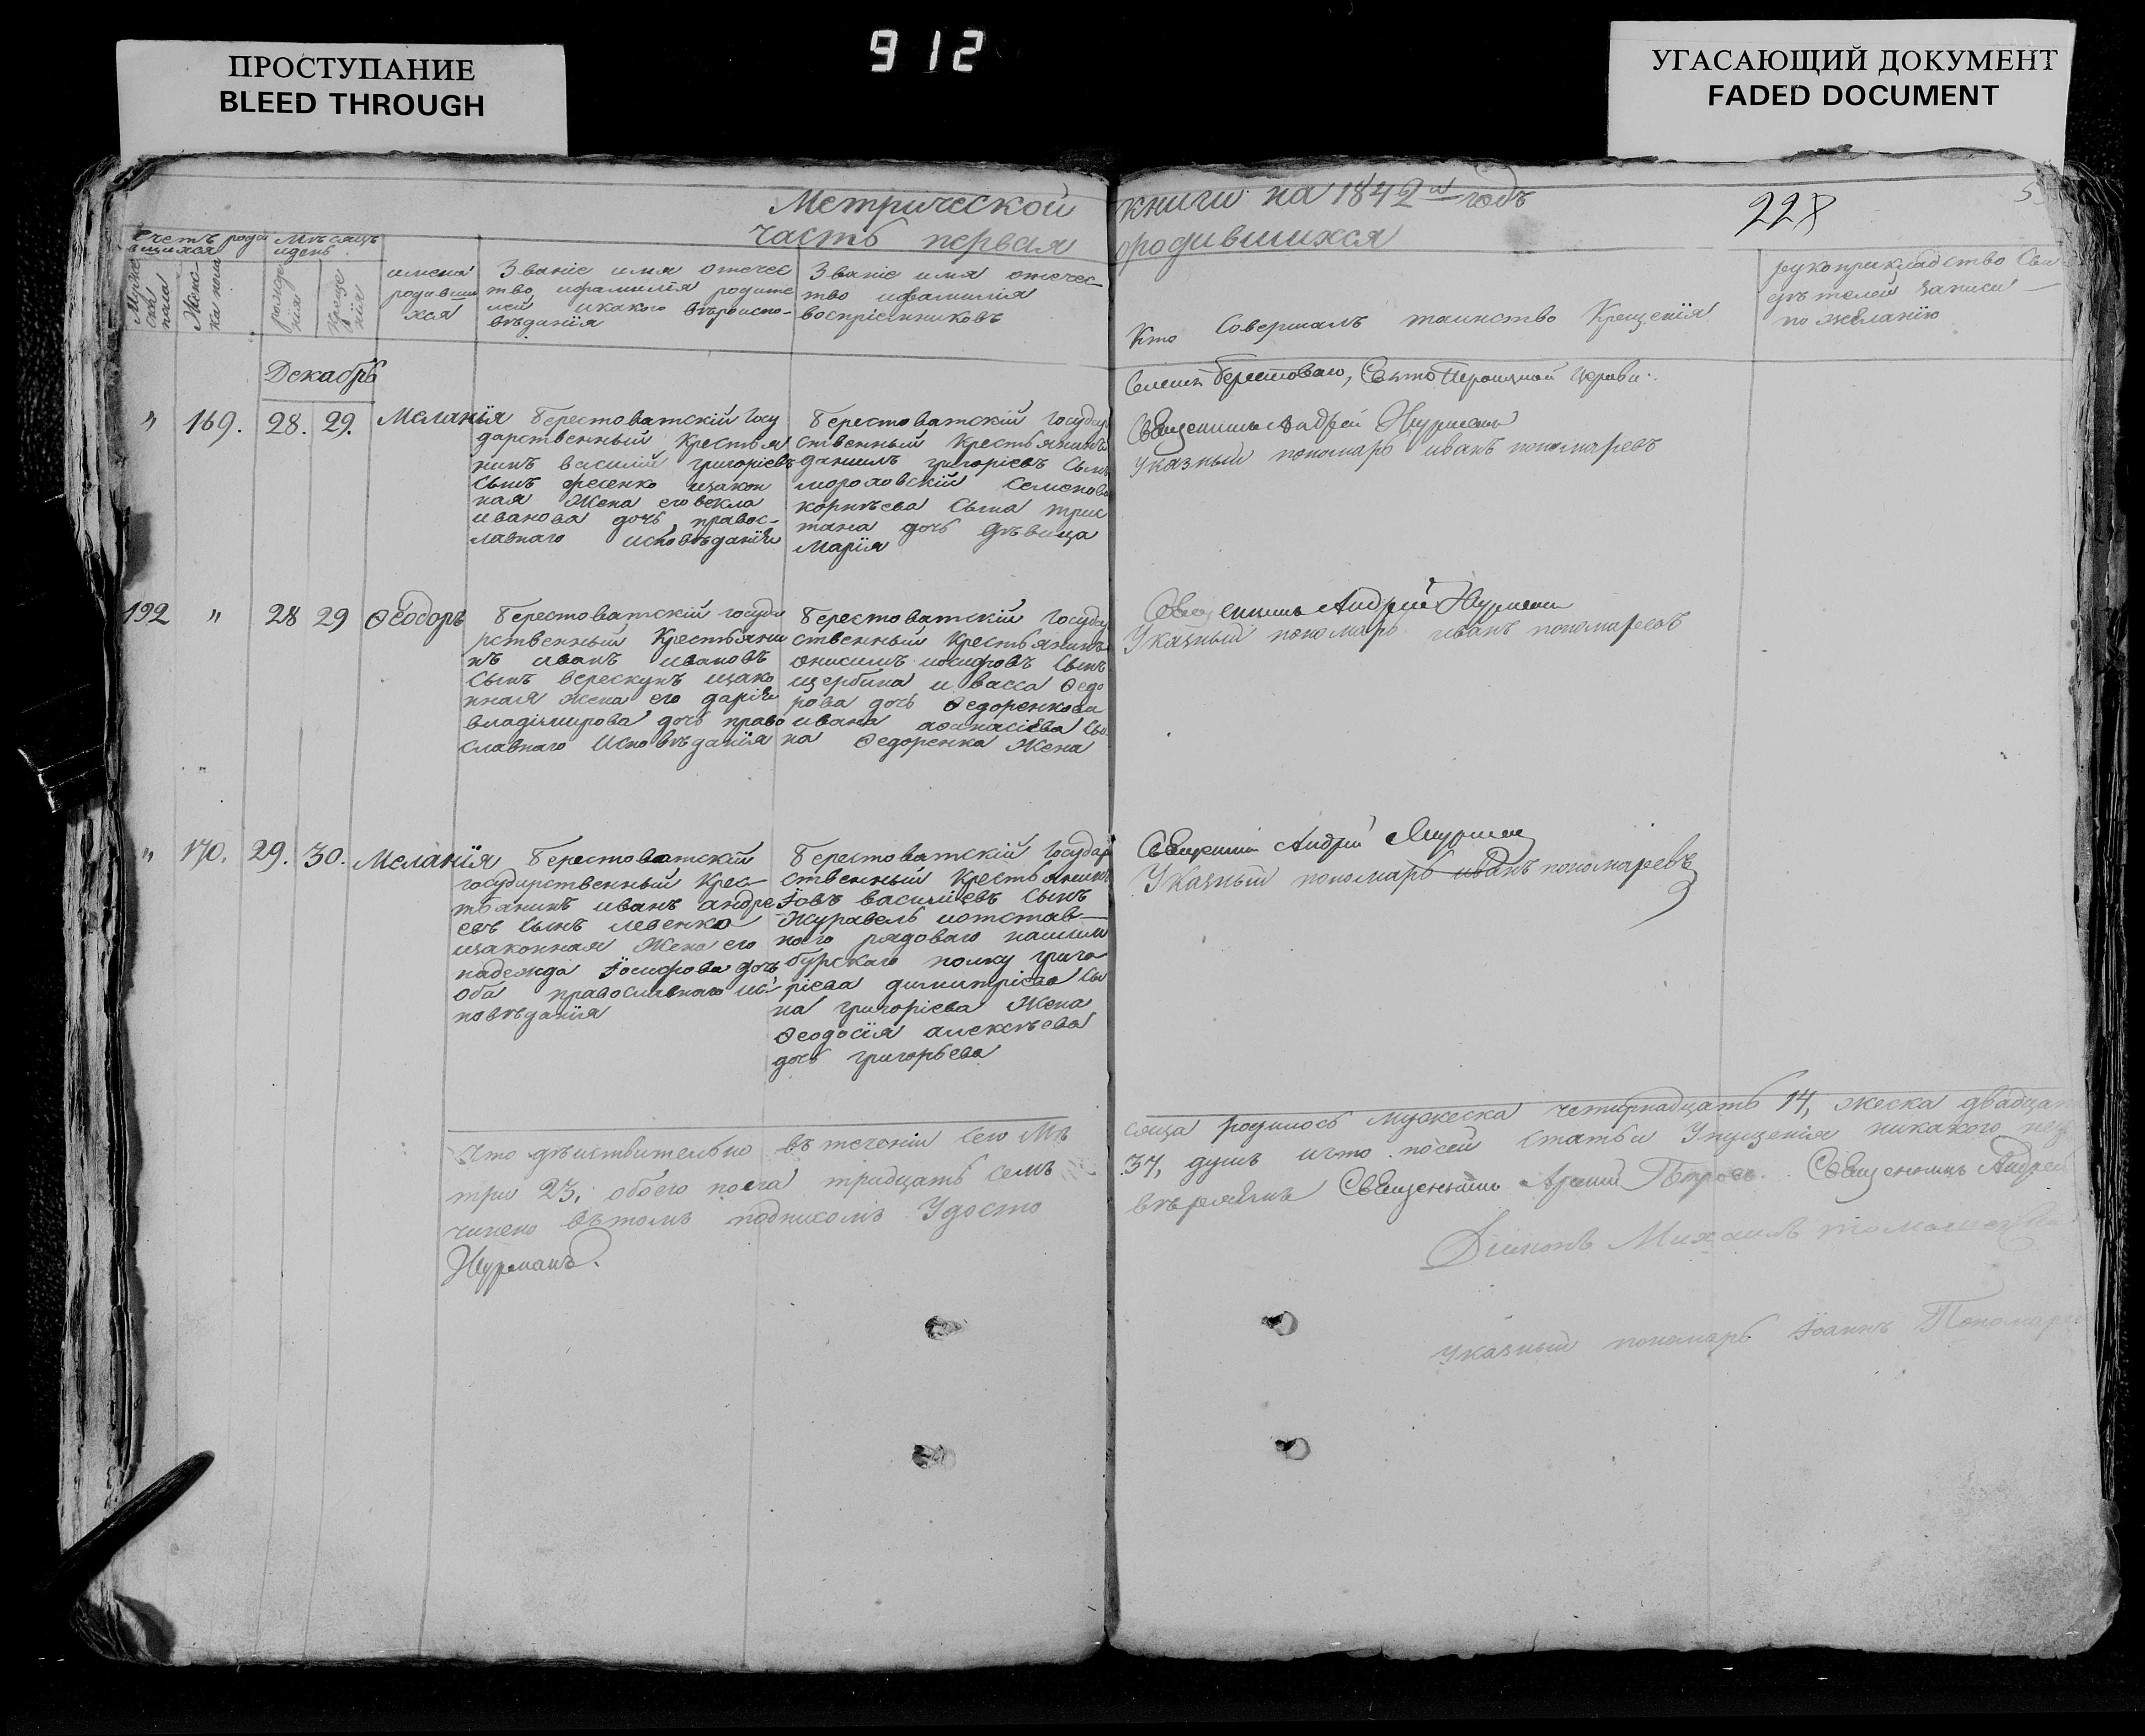 912
ПРОСТУПАНИЕ
BLEED THROUGH
УГАСАЮЩИЙ ДОКУМЕНТ
FADED DOCUMENT
Метрической
часть первая
книги на 1842й годъ
о родившихся
228
счетъ роди
вшихся
Мужес
ска
пола
Женс
ка пола
Мѣсяцъ
и день
рожде
нія
креще
нія
имена
родивши
хся
Званіе имя отечес
тво, ифамилія родите
лей икакого вѣроиспо-
вѣданія
Званіе имя отечес-
тво ифамилія
воспріемниковъ
Кто Совершалъ таинство Крещенія
рукоприкладство Сви
дѣтелей записи
по желанію
Декабрь
Берестоваго, Свято Троицкой Церкви
" 169. 28. 29. Меланія
Берестоватскій Госу
дарственный Крестья
нинъ василій григоріевъ
Сынъ фесенко изакон
ная Жена его векла
иванова дочь правос-
лавнаго исповѣданія
Берестоватскій Государ
ственный Крестьянинъ
данилъ григоріевъ Сынъ
мороховскій Семенова
корнѣева Сына трис
тана дочь дѣвица
Марія
Священникъ Андрей Журманъ
Указный пономарь иванъ пономаревъ
192 " 28 29 Ѳеодоръ
Берестоватскій госуда
рственный Крестьяни
нъ иванъ ивановъ
Сынъ верескунъ изако
нная жена его дарія
владімирова дочь право
славнаго Исповѣданія
Берестоватскій Государ
ственный Крестьянинъ
онисимъ иосифовъ Сынъ
щербина и васса Ѳедо
рова дочь Ѳедоренкова
ивана аѳанасіева Сы
на Ѳедоренка Жена
Священникъ Андрей Журманъ
Указный пономарь иванъ пономаревъ
" 170. 29. 30. Меланія
Берестоватскій
государственный Крес-
тьянинъ иванъ андре
евъ Сынъ левенко
изаконная Жена его
надежда Іосифова дочь
оба православнаго ис-
повѣданія
Берестоватскій Государ
ственный Крестьянинъ
Іовъ василіевъ Сынъ
Журавель иотстав-
ного рядоваго нашим
бурскаго полку григо
ріева димитріева Сы
на григоріева Жена
Ѳеодосія алексѣева
дочь григорьева
Священникъ Андрей Журманъ
Указный пономарь иванъ пономаревъ
Что дѣйствительно втеченіи Сего Мѣ
сяца родилось мужеска четирнадцать 14, жеска двадцать
три 23, обоего пола тридцать семъ
37, душъ ичто посей Статьи Упущенія никакого неу
чинено втомъ подписомъ Удосто
вѣряемъ Священникъ Петровъ. Священникъ Андрей
Журманъ.
Діаконъ Михаилъ
указный пономарь Іоаннъ Пономарев